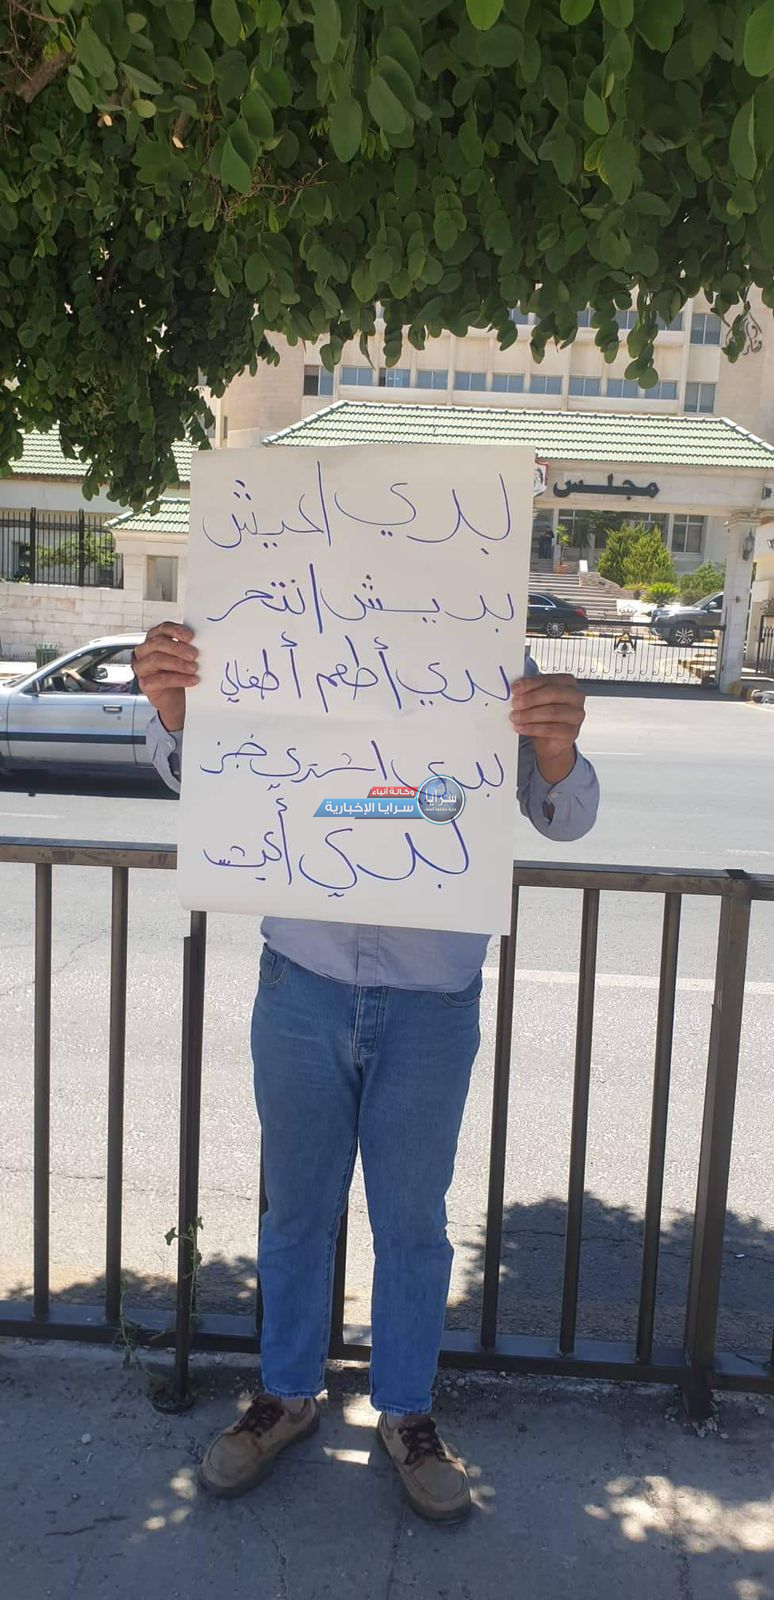 مجلس
بدي اعيش
بديش انتحر
بدي أطعم أطفالي
بدي اشتري خبز
وكالة أنباء
سرايا الإخبارية
سرايا
بدي أعيش